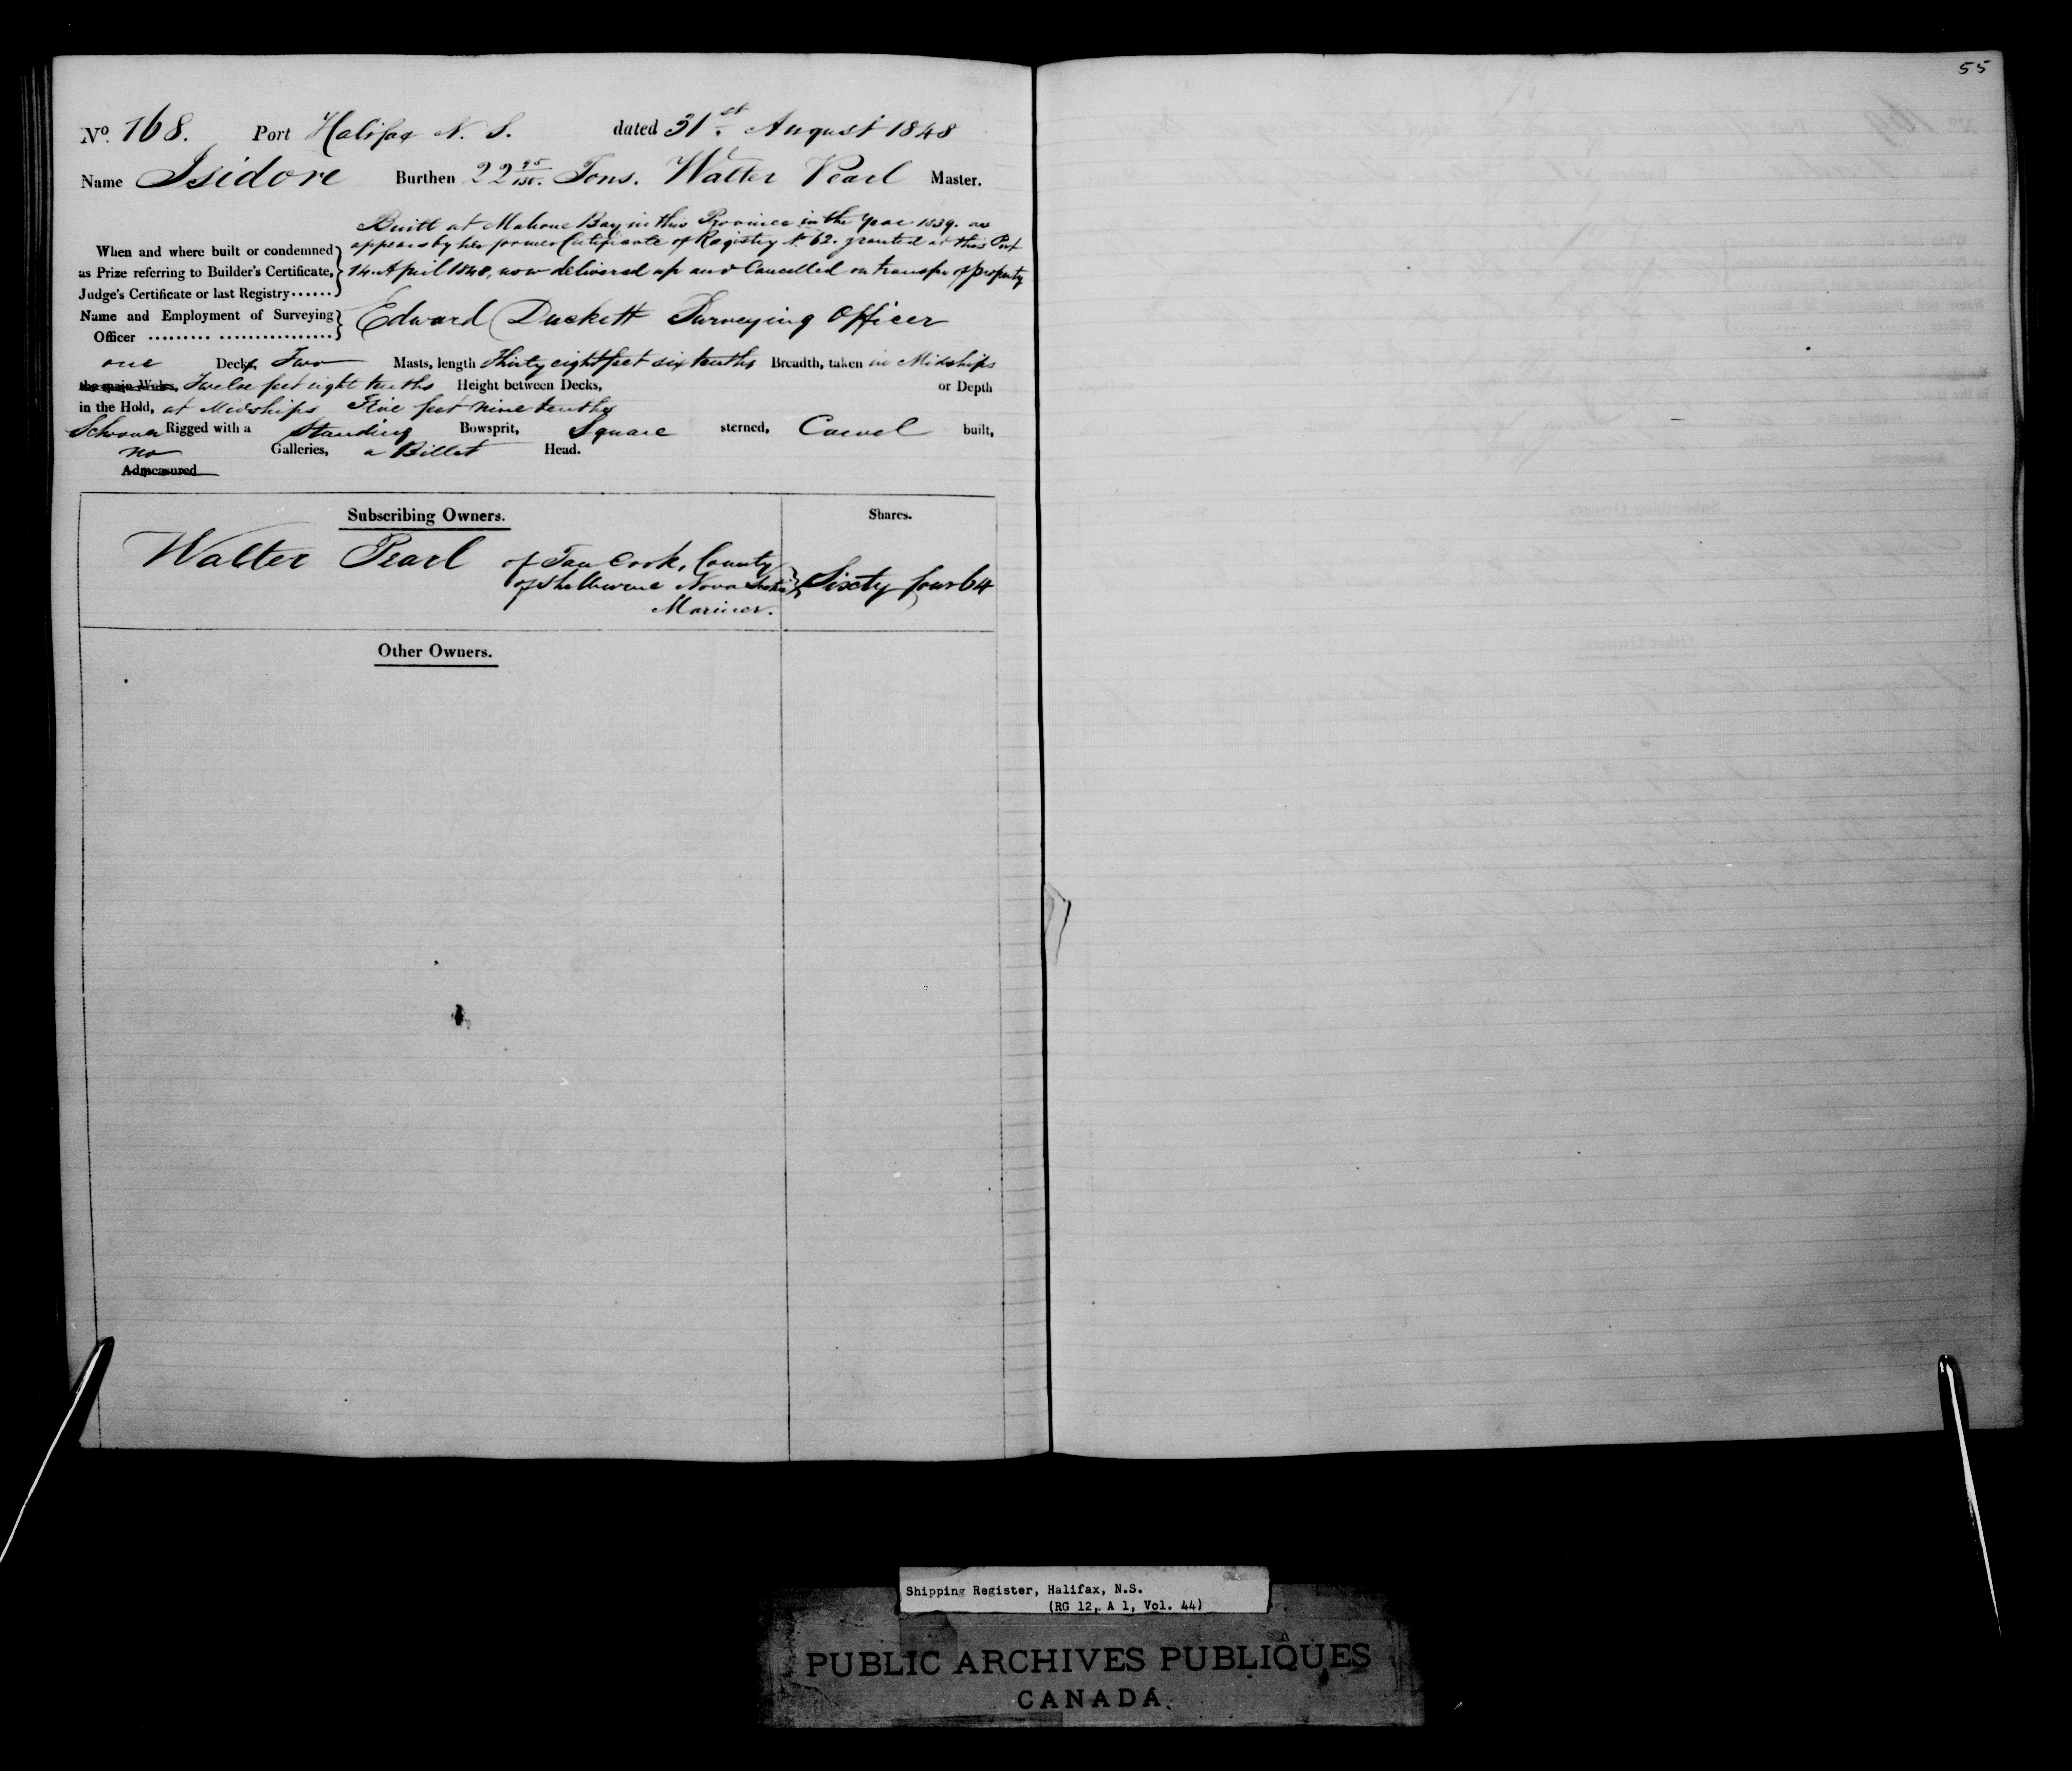 55
No. 168. Port Halifax N. S. dated 31st August 1848
Name Isidore Burthen 22 95/130. Tons. Walter Pearl Master.
Built at Mahone Bay in this Province in the Year 1839. as
appears by her former Certificate of Registry No 62. granted at this Port
14 April 1840, now delivered up and Cancelled on transfer of property
When and where built or condemned
as Prize referring to Builder's Certificate,
Judge's Certificate or last Registry......
Name and Employment of Surveying
Officer ......... ................
Edward Duckett Surveying Officer
one Decks, Two Masts, length Thirty eight feet six tenths Breadth, taken in Midships
the main Wales, Twelve feet eight tenths Height between Decks, or Depth
in the Hold, at Midships Five feet nine tenths
Schooner Rigged with a Standing Bowsprit, Square sterned, Carvel built,
no Galleries, a Billet Head.
Admeasured
Subscribing Owners. Shares.
Walter Pearl of Tan Cook, County
of Shelburne Nova Scotia Sixty four 64
Mariner.
Other Owners.
Shipping Register, Halifax, N.S.
(RG 12, A 1, Vol. 44)
PUBLIC ARCHIVES PUBLIQUES
CANADA